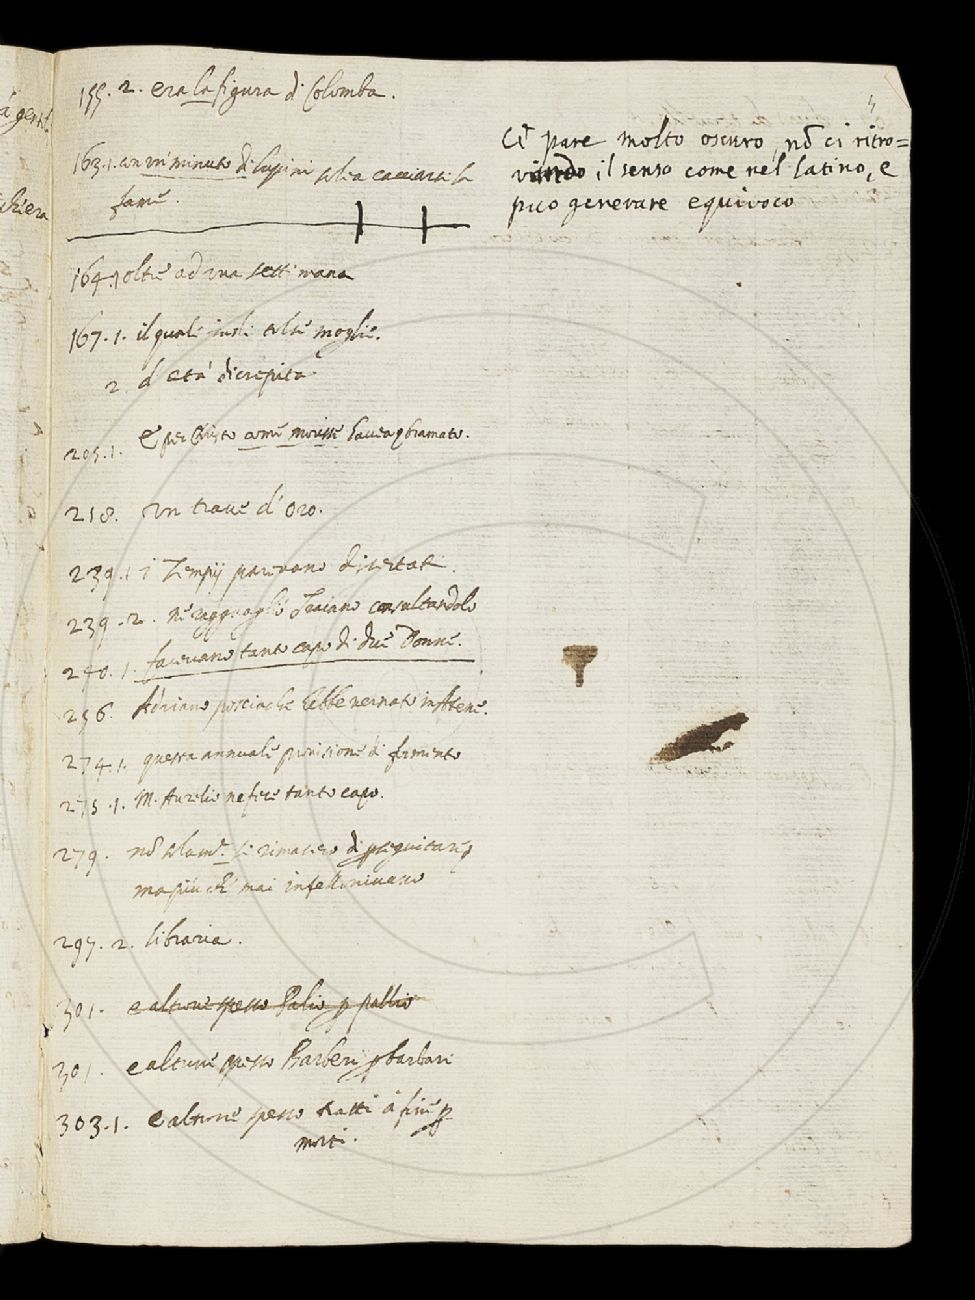 155. 2. era la figura di Colomba.
163.1. con un minuto di lupini solea cacciarsi la
fame.
Ci pare molto oscuro, nō ci ritro=
vando il senso come nel latino, e
può generare equivoco
164.1 oltre ad una settimana
167. 1. il quale tolse moglie.
2. d'età dicrepita
205.1. E per Christo come morisse havea bramato.
218. un trave d'oro.
239.1 i Tempij parevano disertati.
239. 2. ne ragguagliò Traiano consultandolo
240. 1. facevano tanto capo di due Donne.
256. Adriano posciache hebbe vernato in Atene.
274.1. questa annuale provisione di formento
275.1. M. Aurelio ne fece tanto capo.
279. nō solam.e si rimasero di
ma più che mai infellonivano
297. 2. libraria.
301. e altrove spesso Palio p pallio
301. e altrove spesso Barberi p barbari
303.1. e altrove spesso tratti à fine p
morti.